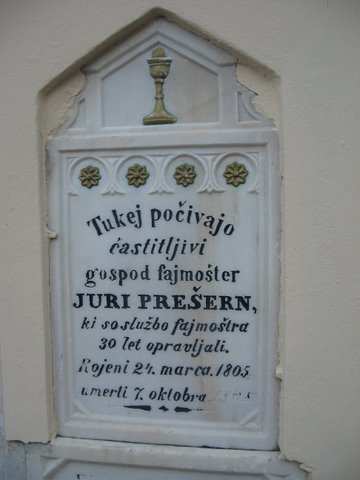 Tukej počivajo
častitljivi
gospod fajmošter
JURI PREŠERN,
ki so službo fajmoštra
30 let opravljali.
Rojeni 24. marca. 1805.
umerli 7. oktobra.